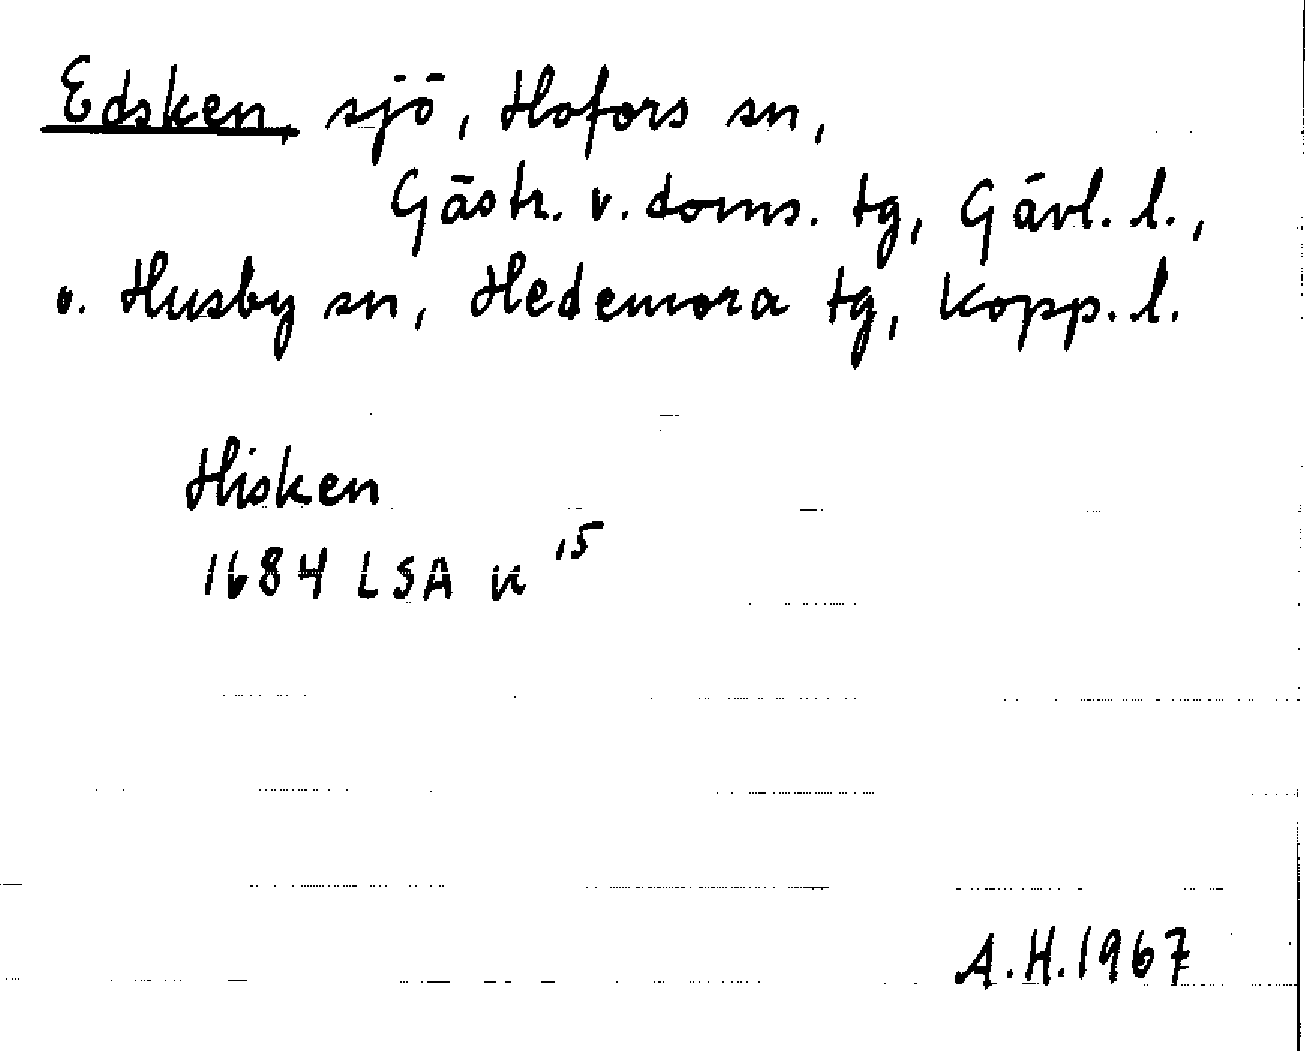 Edsken, sjö, Hofors sn,
Gästr. v. doms. tg, Gävl. l.,
o. Husby sn, Hedemora tg, Kopp. l.
Hisken
1684 LSA u 15
A.H.1967